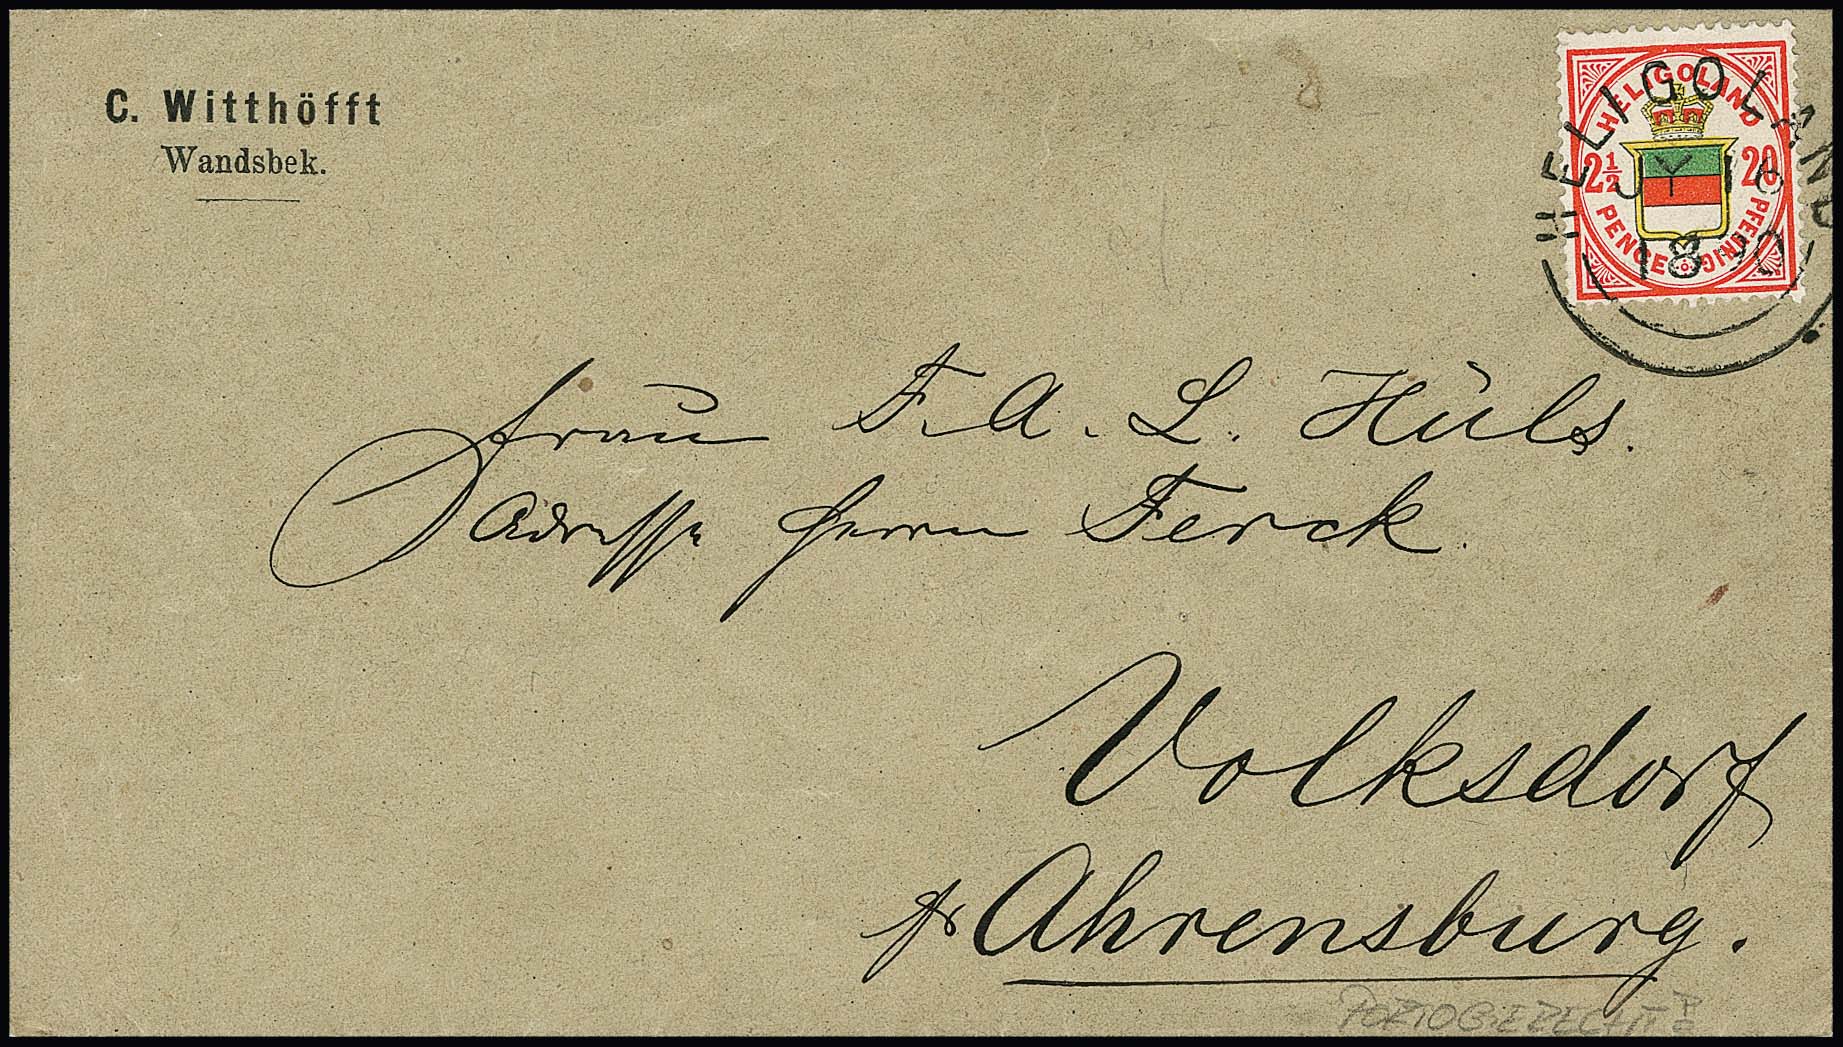 C. Witthöfft
Wandsbek.
HELIGOLAND
2½ 20
PENCE PFENNIG
HELIGOLAND
JY 16
1890
Frau F. A. L. Hüls.
Adresse Herrn Ferck.
Volksdorf
pr Ahrensburg.
PORTOGERECHT